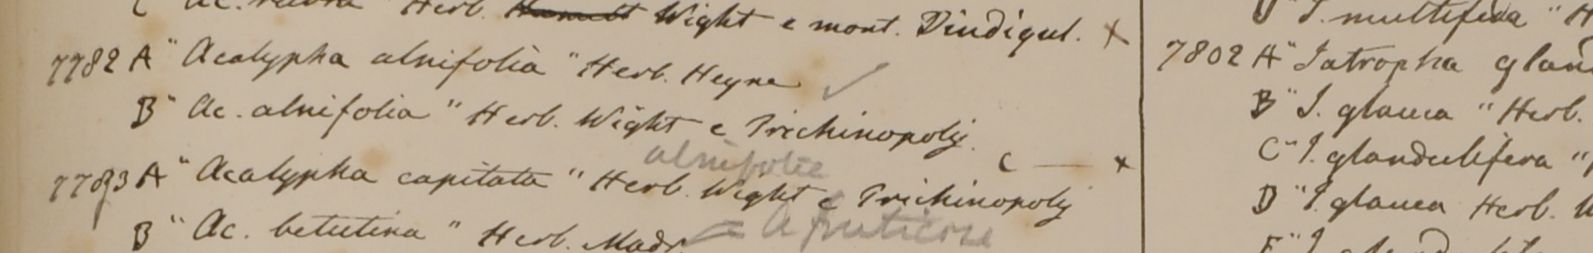 C "Ac. rubra" Herb. Wight e mont. Dindigul. ×
7782 A "Acalypha alnifolia" Herb. Heyne ✓
B "Ac. alnifolia" Herb. Wight e Trichinopoly.
C — ×
alnifolia
7783 A "Acalypha capitata" Herb. Wight e Trichinopoly
B "Ac. betulina" Herb. Madr
= A fruticosa
"J. multifida" H
7802 A "Jatropha glan
B "J. glauca" Herb.
C "J. glandulifera"
D "J. glauca Herb.